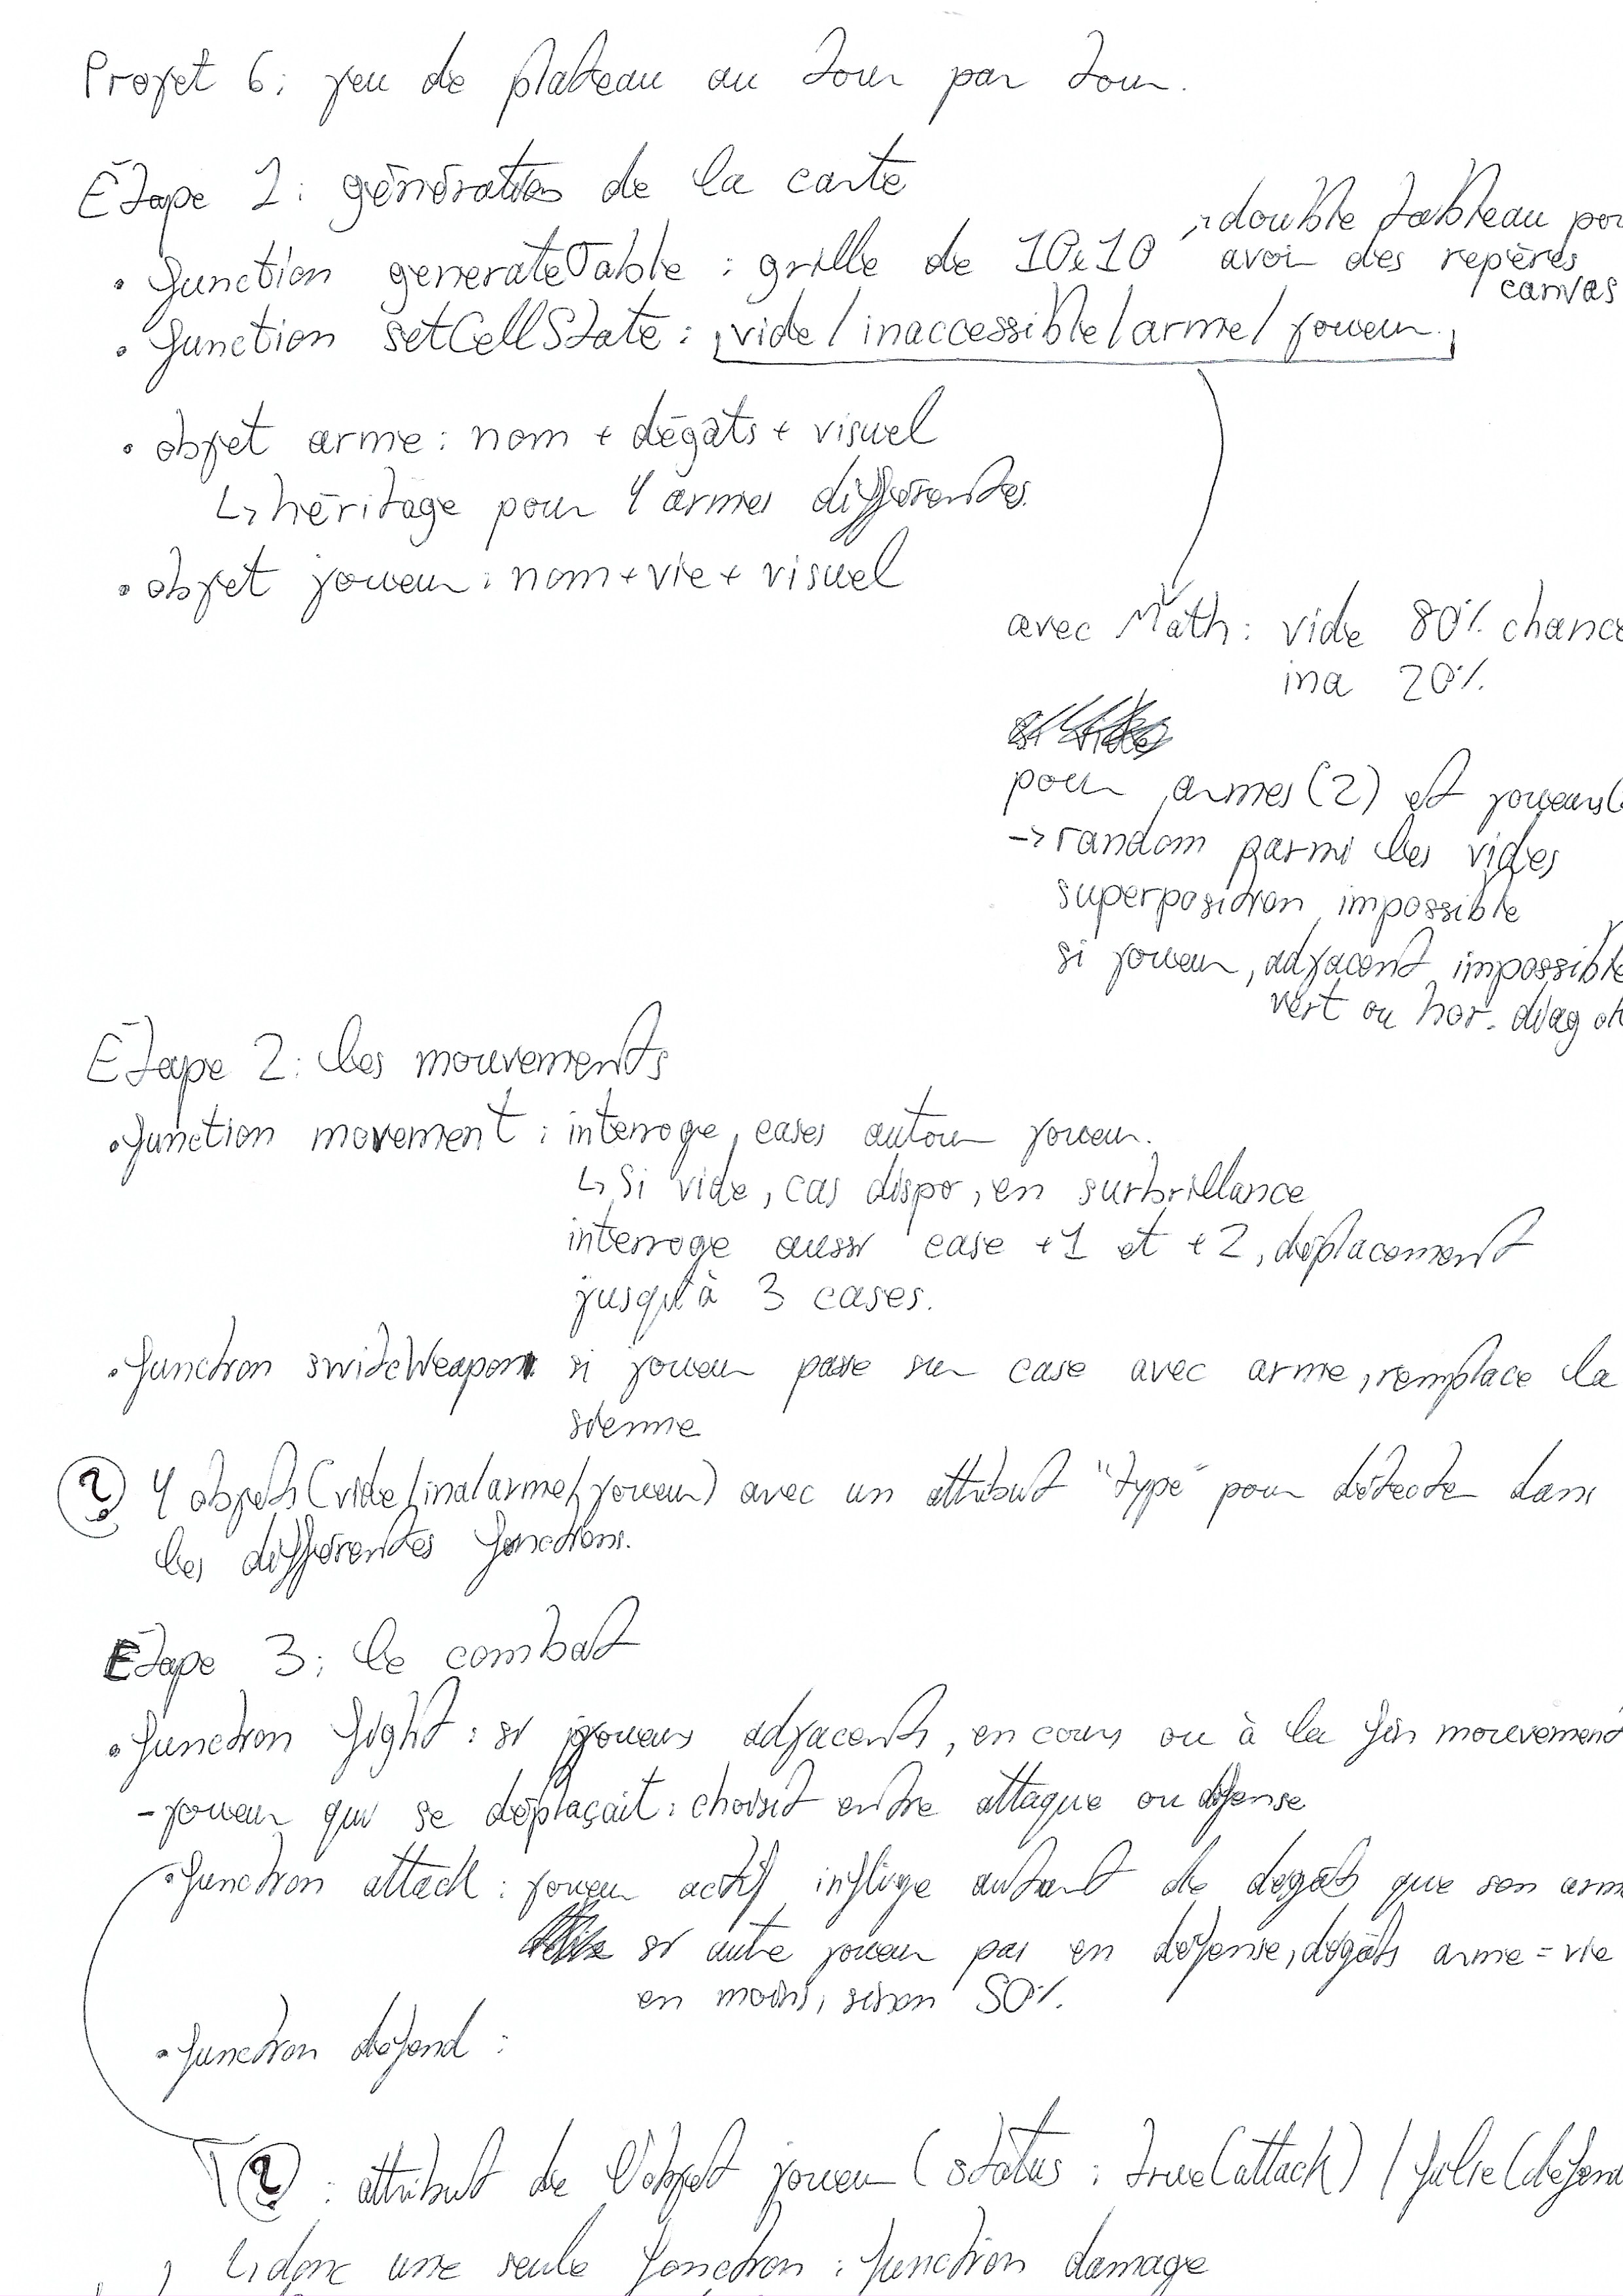 Projet 6: jeu de plateau au tour par tour.
Etape 1: génération de la carte
double tableau po
• function generateTable : grille de 10x10 avoir des repères
canvas
• function setCellState : vide / inaccessible / arme / joueur
• objet arme: nom + dégâts + visuel
↳ héritage pour 4 armes différentes.
• objet joueur: nom + vie + visuel
avec Math: vide 80% chance
ina 20%
pour armes (2) et joueurs (
-> random parmi les vides
superposition impossible
si joueur, adjacent impossible
vert ou hor. diag ok
Etape 2: les mouvements
• function movement : interroge cases autour joueur.
↳ Si vide, cas dispo, en surbrillance
interroge aussi case +1 et +2, déplacement
jusqu'à 3 cases.
• function switchWeapon si joueur passe sur case avec arme, remplace la
sienne
? 4 objets (vide/ina/arme/joueur) avec un attribut "type" pour détecter dans
les différentes fonctions.
Etape 3: le combat
• function fight : si joueurs adjacents, en cours ou à la fin mouvement
- joueur qui se déplaçait: choisit entre attaque ou défense
• function attack : joueur actif inflige autant de dégâts que son arm
si autre joueur pas en défense, dégâts arme = vie
en moins, sinon 50%.
• function defend :
? : attribut de l'objet joueur (status : true (attack) / false (defend
↳ donc une seule fonction : function damage